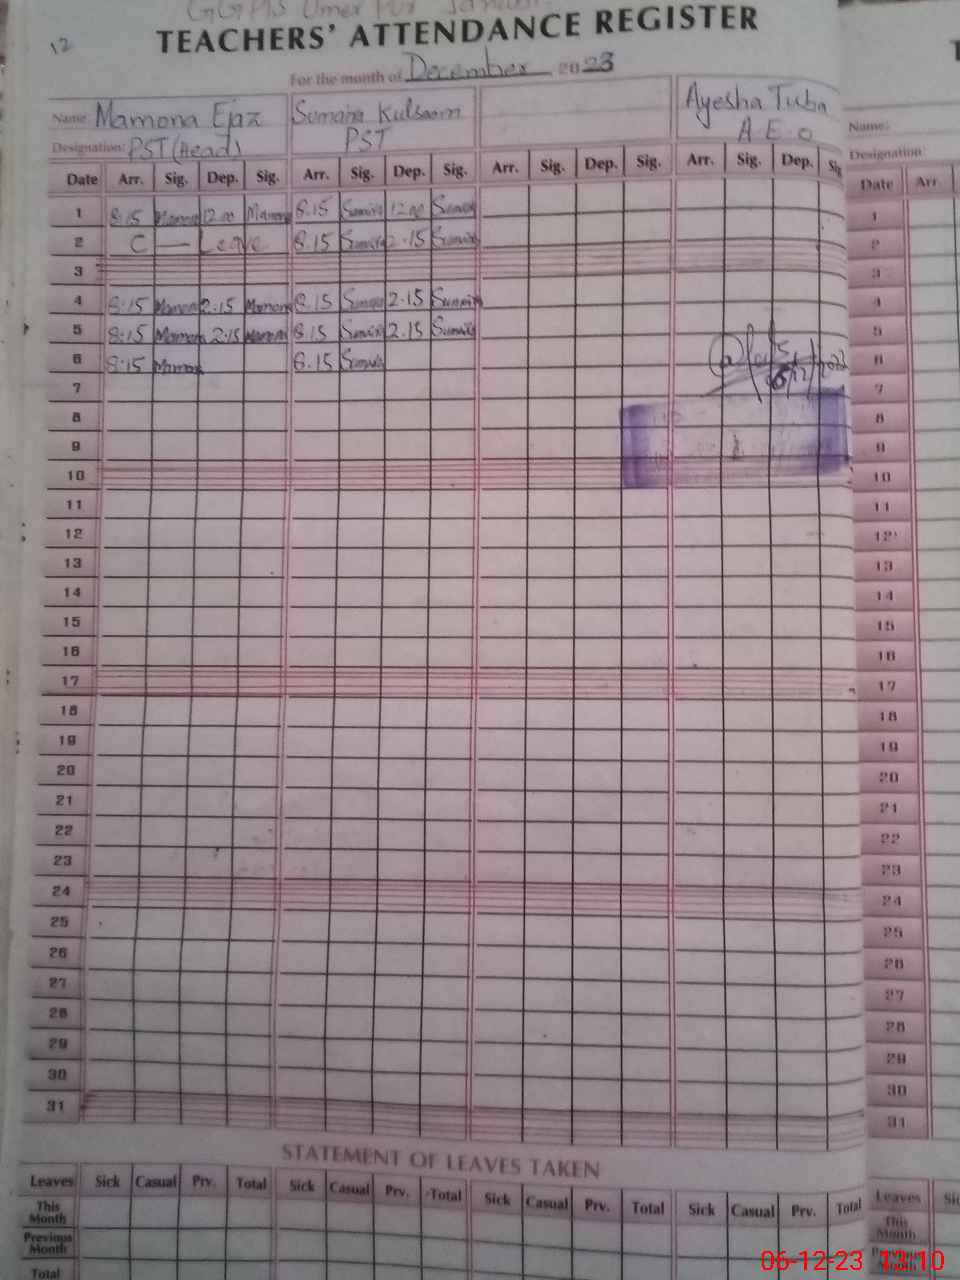 12
TEACHERS' ATTENDANCE REGISTER
For the month of December 2023
Name: Mamona Ejaz Sumaira Kulsoom Ayesha Tuba
Designation: PST (Head) PST A E O
Date Arr. Sig. Dep. Sig. Arr. Sig. Dep. Sig. Arr. Sig. Dep. Sig. Arr. Sig. Dep. Sig
1 8:15 Mamona 12:00 Mamona 8.15 Sumaira 12:00 Sumaira
2 C — Leave 8.15 Sumaira 2.15 Sumaira
3
4 8:15 Mamona 2:15 Mamona 8.15 Sumaira 2.15 Sumaira
5 8:15 Mamona 2:15 Mamona 8.15 Sumaira 2.15 Sumaira
6 8:15 Mamona 8.15 Sumaira
7
8
9
10
11
12
13
14
15
16
17
18
19
20
21
22
23
24
25
26
27
28
29
30
31
STATEMENT OF LEAVES TAKEN
Leaves Sick Casual Prv. Total Sick Casual Prv. Total Sick Casual Prv. Total Sick Casual Prv. Total
This Month
Previous Month
Total
Name:
Designation:
Date Arr.
1
2
3
4
5
6
7
8
9
10
11
12
13
14
15
16
17
18
19
20
21
22
23
24
25
26
27
28
29
30
31
Leaves
This Month
Previous Month
06-12-23 13:10